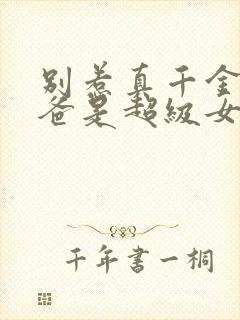 别惹真千金
爸是超级女
千年書一桐